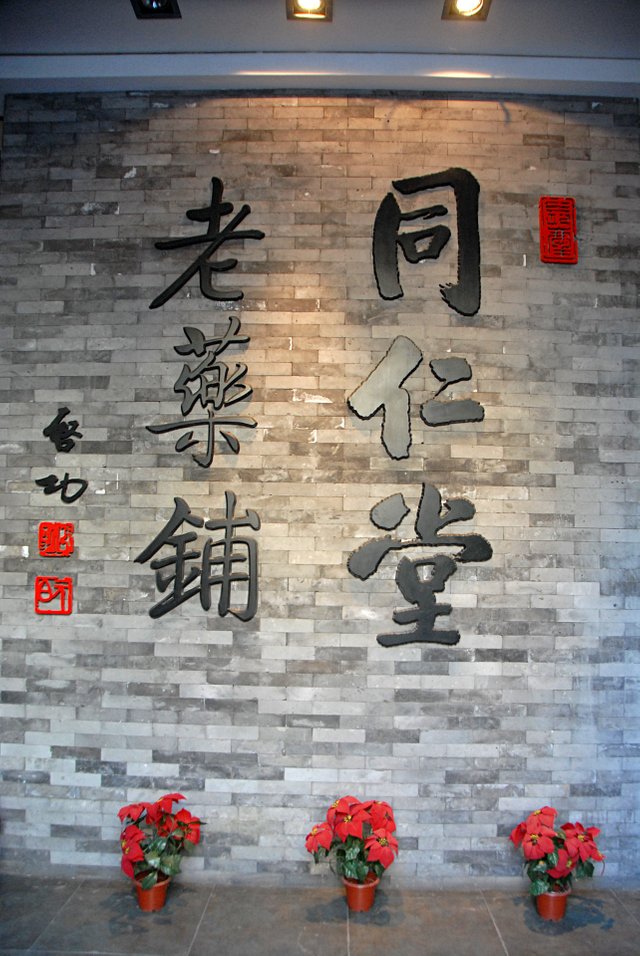 同仁堂
老藥鋪
啓功